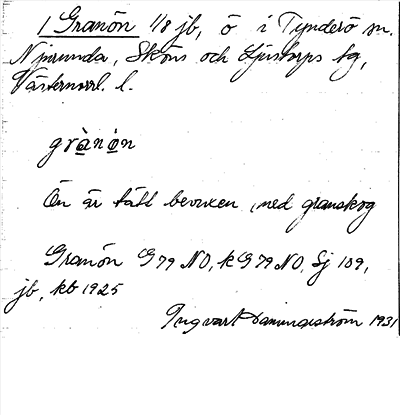 1 Granön 1/8 jb, ö i Tynderö sn.
Njurunda, Sköns och Ljustorps tg,
Västernorrl. l.
grànön
Ön är tätt bevuxen med granskog
Granön G79 NO, k G79 NO, Sj 109,
jb, kb 1925
Ingvart 1931